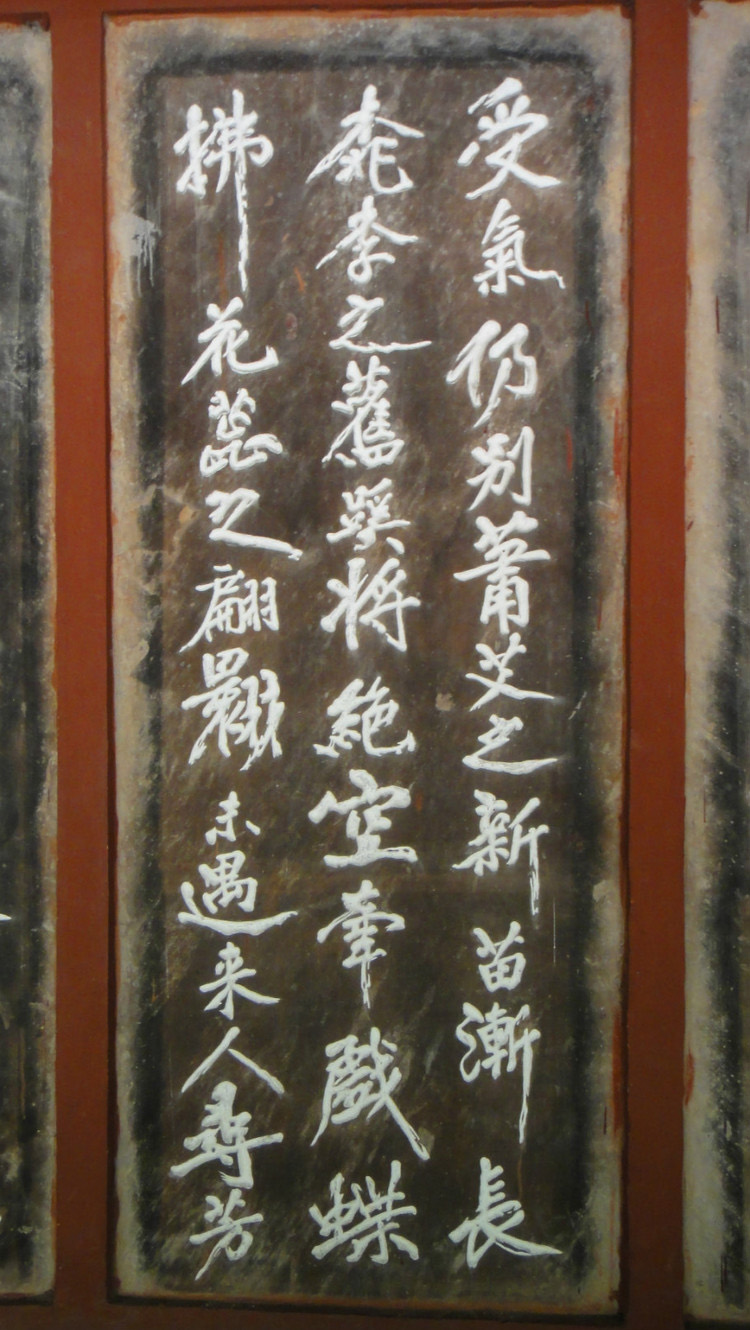 受氣仍别蕭艾之新苗漸長
桃李之舊蹊將絶空牽戲蝶
拂花蕊之翩翾未遇来人尋芳